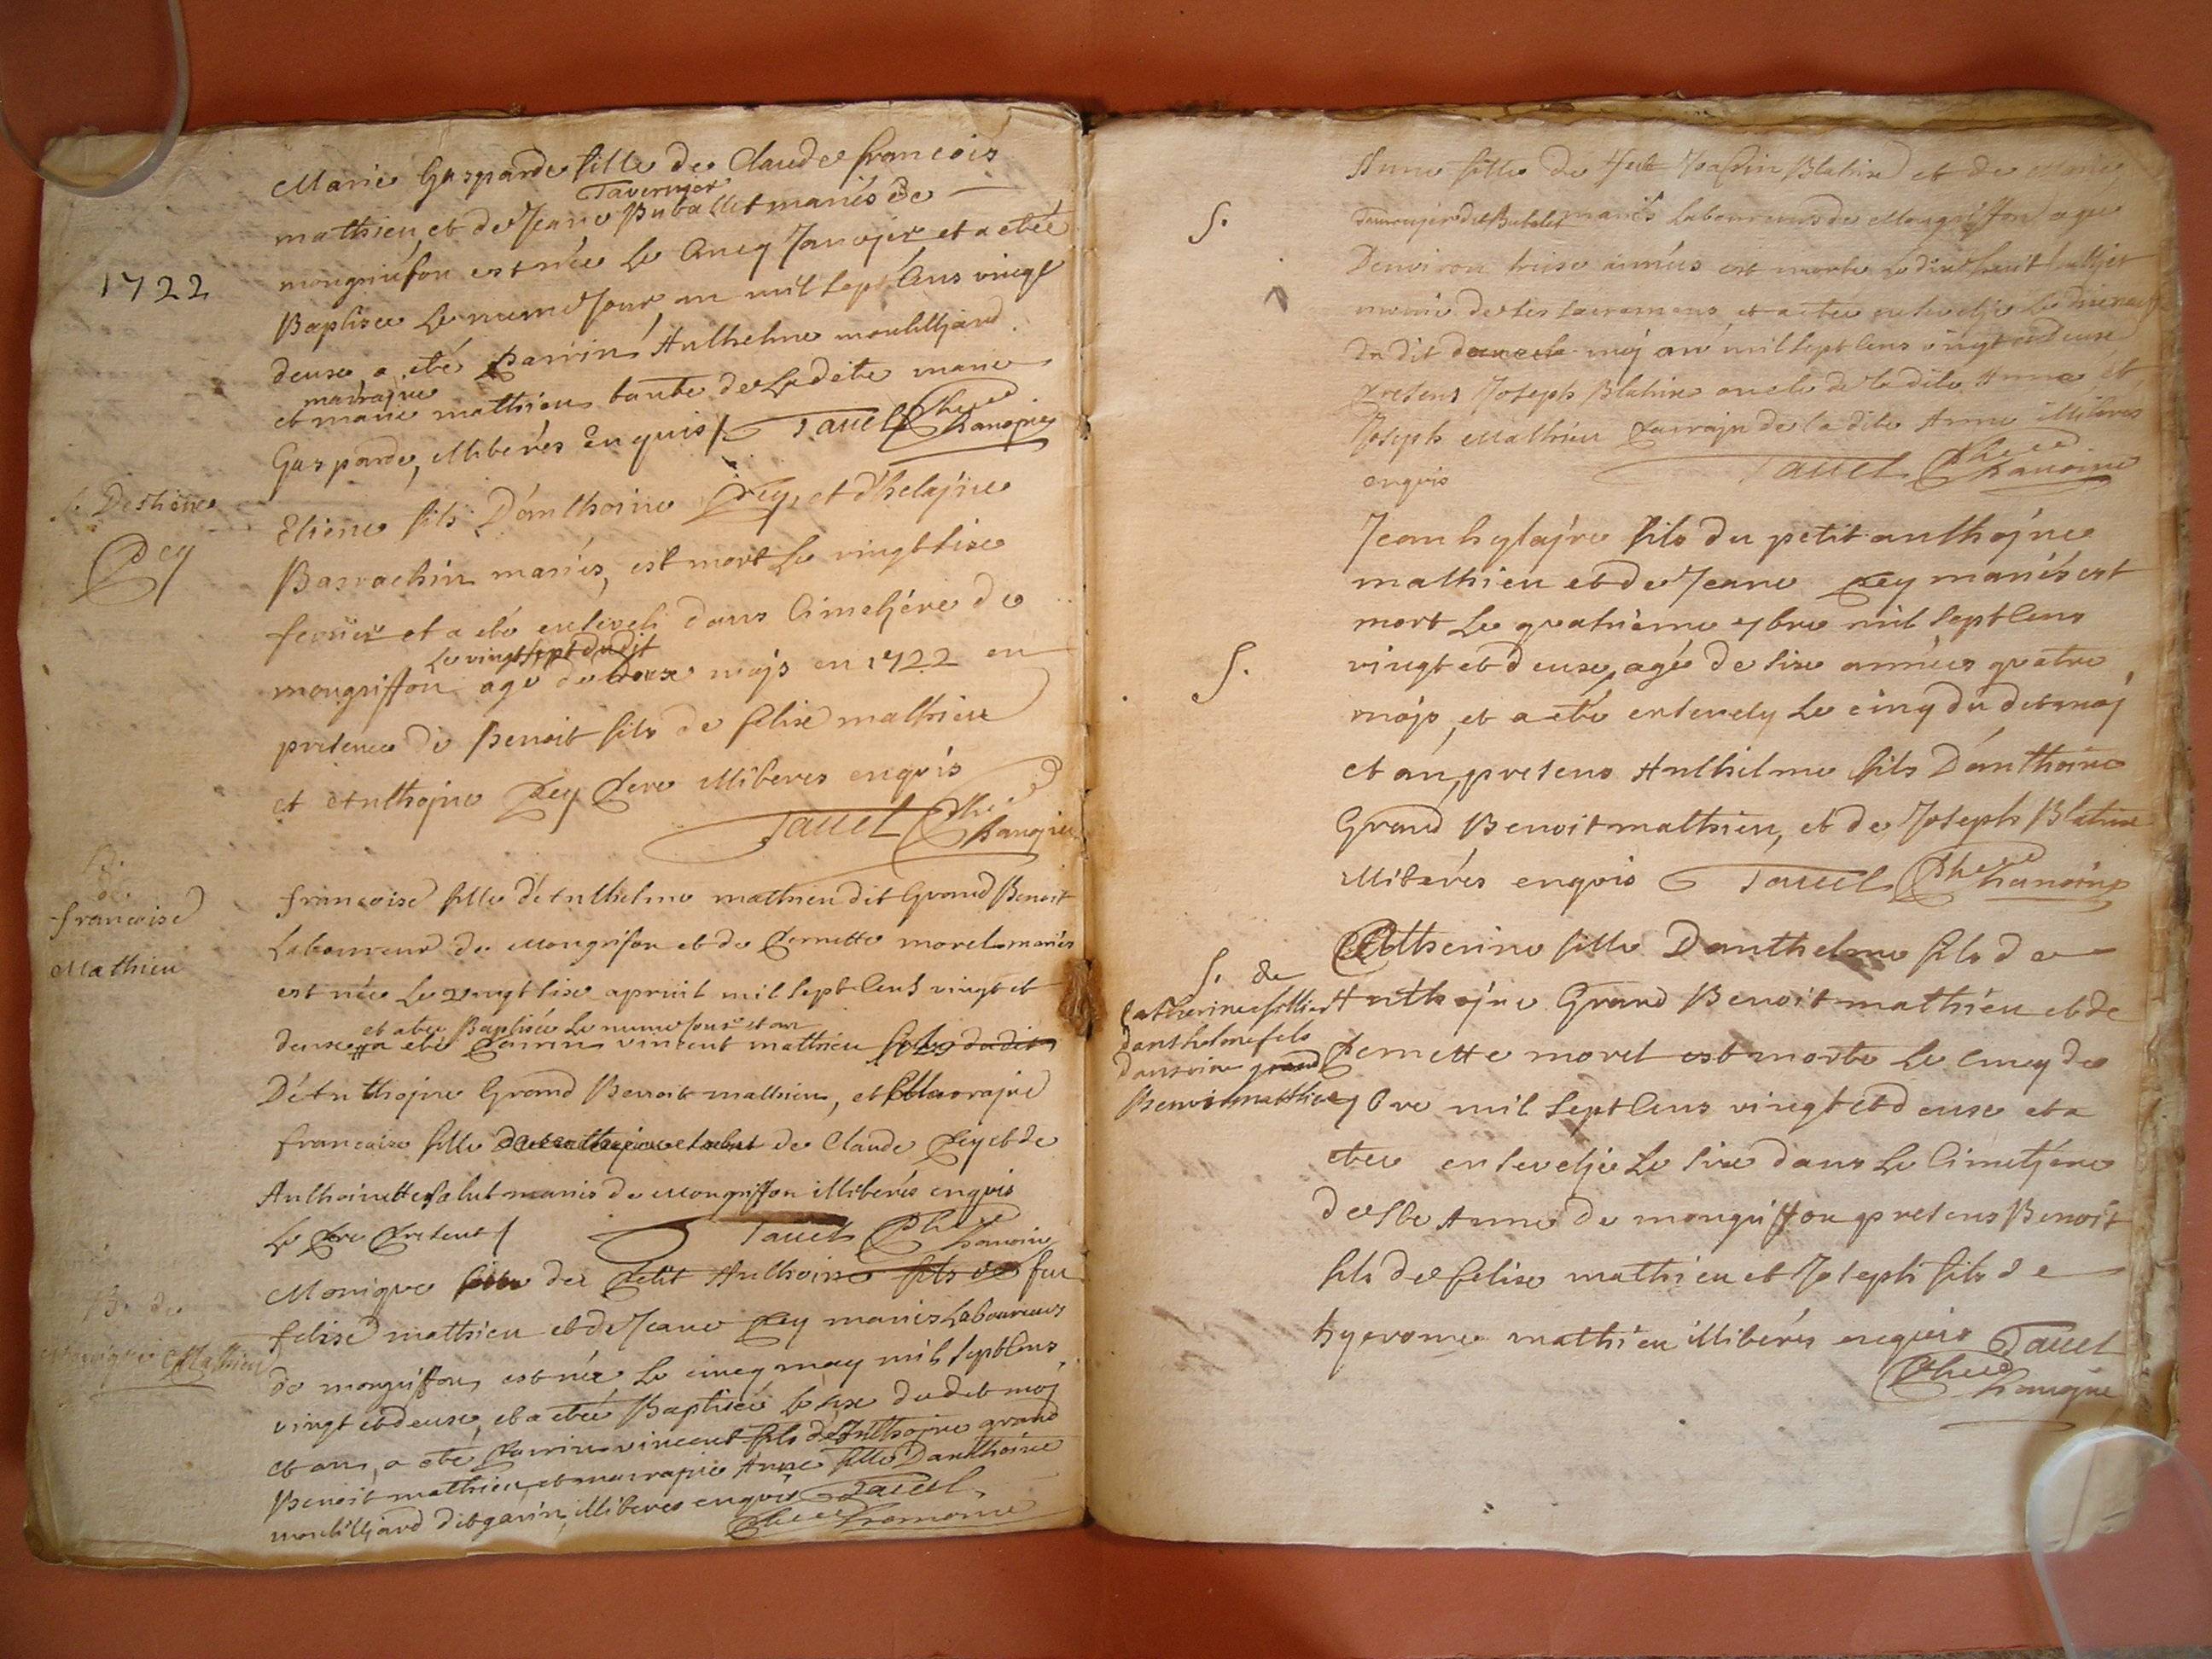 Marie Gasparde fille de Claude francois
Tavernger
mathieu et de Jeane Buballet mariés de
1722
mongriffon est née le Cincq Janvjer et a etée
Baptisée le meme Jour, an mil sept Cens vingt
deuxe a eté parrin Anthelme montilljard
marrajne
et marie mathieu tante de Ladite marie
Gasparde, illiberés Enquis /. Tauel phre
hanojne
S. Destiene
Pey
Etiene fils D'anthoine Pey, et d'helajne
Barrachin mariés, est mort Le vingtsixe
fevrier et a eté enseveli dans Cimetjére de
Le vingt sept du dit
mongriffon agé de deux mojs en 1722 en
presence de Benoit fils de felixe mathieu
et Anthojne Pey Pere illiberes enquis
Tauel Phre
hanojne
B.
de
francoise
Mathieu
francoise fille d'Anthelme mathieu dit Grand Benoit
Laboureur de Mongrifon et de Pernette morel mariés
est née Le vingtsixe apvril mil sept Cens vingt et
et a etee Baptisée Le meme Jour et an
deuxe a eté Parrin vincent mathieu fils du dit
D'Anthojne Grand Benoit mathieu, et Marrajne
francoise fille de Claude Pey et de
Anthoinette salut mariés de Mongriffon illiberés enquis
Le Pre Present / Tauel Phre
hanoine
B. de
monique Mathieu
Monique fille de Petit Anthoine fils de feu
felixe mathieu et de Jeane Pey mariés Laboureurs
de mongriffon, est née Le cincq may mil septCens
vingt et deuxe, et a etée Baptisée Le sixe dudit moj
et an, a ete Parrin vincent fils d'Anthojne grand
Benoit mathieu, et marrajne Anne fille D'anthoine
montilljard dit garin, illiberes enquis Tauel
Phre hanoine
Anne fille de feu Blatrix et de Marie
S.
Tavernjer dit Bubalet mariés laboureurs de Mongriffon agee
D'environ treise années est morte Le dixehuit
munie de ses sacremens et a etee ensevelje Le dixeneuf
du dit moj an mil sept Cens vingt et deuxe
presens Joseph Blatrix oncle de la dite Anne et
Joseph Mathieu parrajn de la dite Anne illiberes
enquis Tauel Phre
hanoine
Jean hylajre fils du petit anthojne
mathieu et de Jeane Pey mariés est
mort Le quatrieme 9bre mil sept Cens
S.
vingt et deuxe, agé de sixe années quatre
mojs, et a eté ensevely Le cinq du dit moj
et an, presens Anthelme fils D'anthoine
Grand Benoit mathieu, et de Joseph Blatrix
illiberés enquis Tauel Phre
hanoine
S. de
Catherine fillie
danthelme fils
dantoine grand
Benoit mathieu
Catherine fille Danthelme fils de
Anthojne Grand Benoit mathieu et de
Pernette morel est morte Le cincq de
9bre mil sept Cens vingt et deuxe et a
etee ensevelje Le sixe dans Le Cimetjere
de Ste Anne de mongriffon presens Benoit
fils de felixe mathieu et Joseph fils de
hyerome mathieu illiberés enquis Tauel
Phre
hanojne